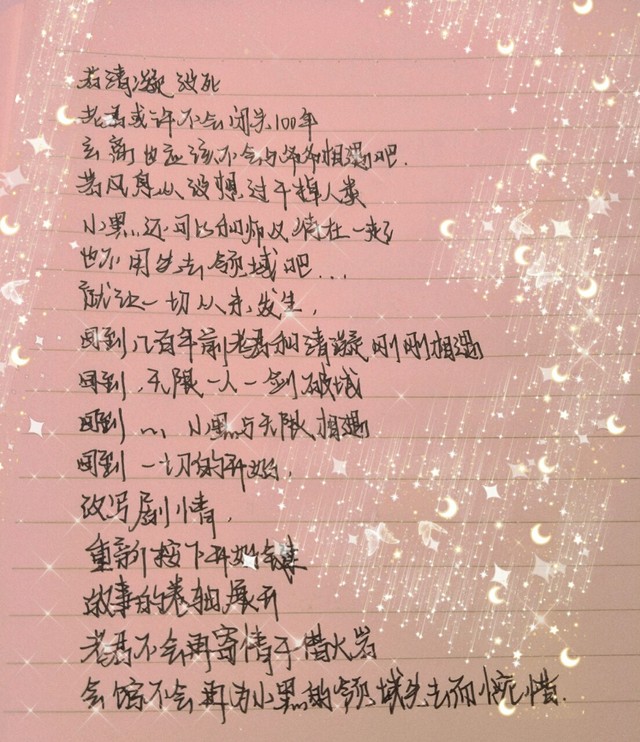 若清凝没死
老君或许不会闭关100年
玄离也应该不会与帝帝相遇吧.
若风息从没想过干掉人类
小黑还可以和师父待在一起
也不用失去领域吧...
就让一切从未发生,
回到几百年前老君和清凝刚刚相遇
回到,无限一人一剑破城
回到...小黑与无限相遇
回到一切的开始,
改写剧情,
重新按下开始键
故事的卷轴展开
老君不会再寄情于借火岩
会馆不会再为小黑的领域失去而惋惜.